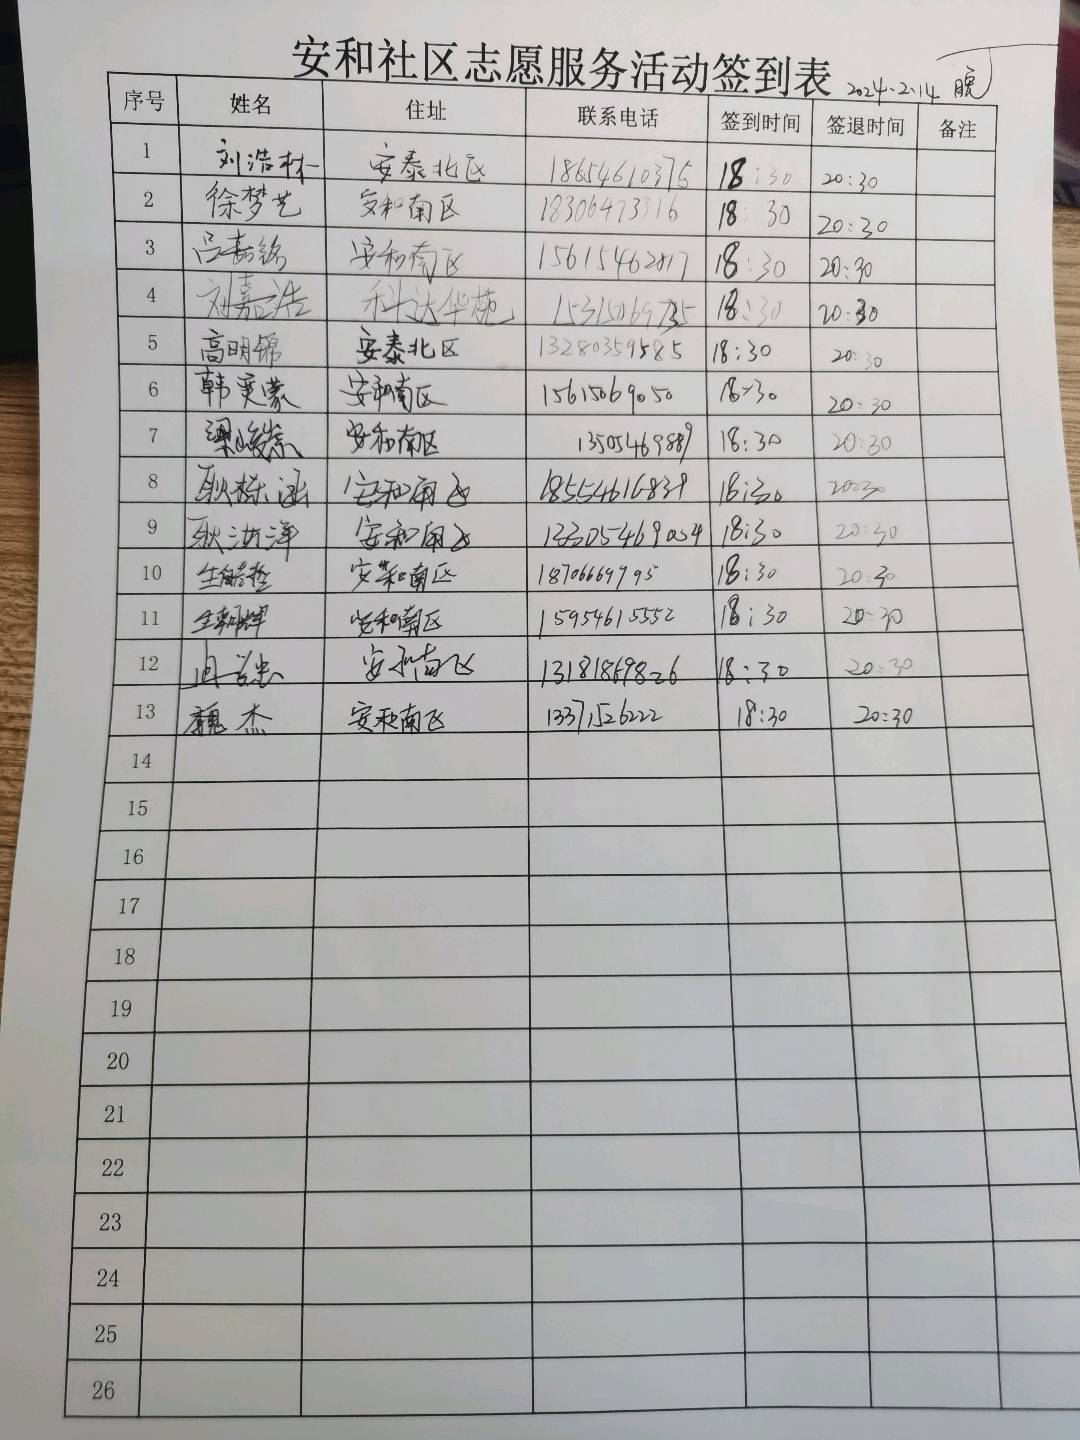 安和社区志愿服务活动签到表 2024.2.14 晚
序号 姓名 住址 联系电话 签到时间 签退时间 备注
1 刘浩林 安泰北区 18654610376 18:30 20:30
2 徐梦艺 安和南区 18306473316 18:30 20:30
3 吕嘉铭 安和南区 15615462817 18:30 20:30
4 刘嘉浩 科达华苑 18:30 20:30
5 高明锦 安泰北区 13280359585 18:30 20:30
6 韩奕蒙 安和南区 15615069050 18:30 20:30
7 安和南区 13505469889 18:30 20:30
8 耿栎涵 安和南区 18554616839 18:30 20:30
9 耿浙洋 安和南区 133054690504 18:30 20:30
10 安和南区 18706669795 18:30 20:30
11 安和南区 15954615552 18:30 20:30
12 安和南区 13181869826 18:30 20:30
13 魏杰 安和南区 13371526222 18:30 20:30
14
15
16
17
18
19
20
21
22
23
24
25
26